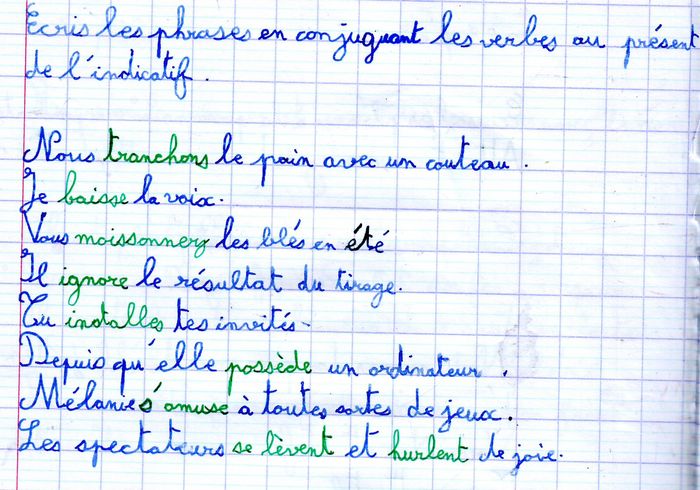 Ecris les phrases en conjuguant les verbes au présent
de l'indicatif.
Nous tranchons le pain avec un couteau.
Je baisse la voix.
Vous moissonnez les blés en été
Il ignore le résultat du tirage.
Tu installes tes invités.
Depuis qu'elle possède un ordinateur.
Mélanie s'amuse à toutes sortes de jeux.
Les spectateurs se lèvent et hurlent de joie.